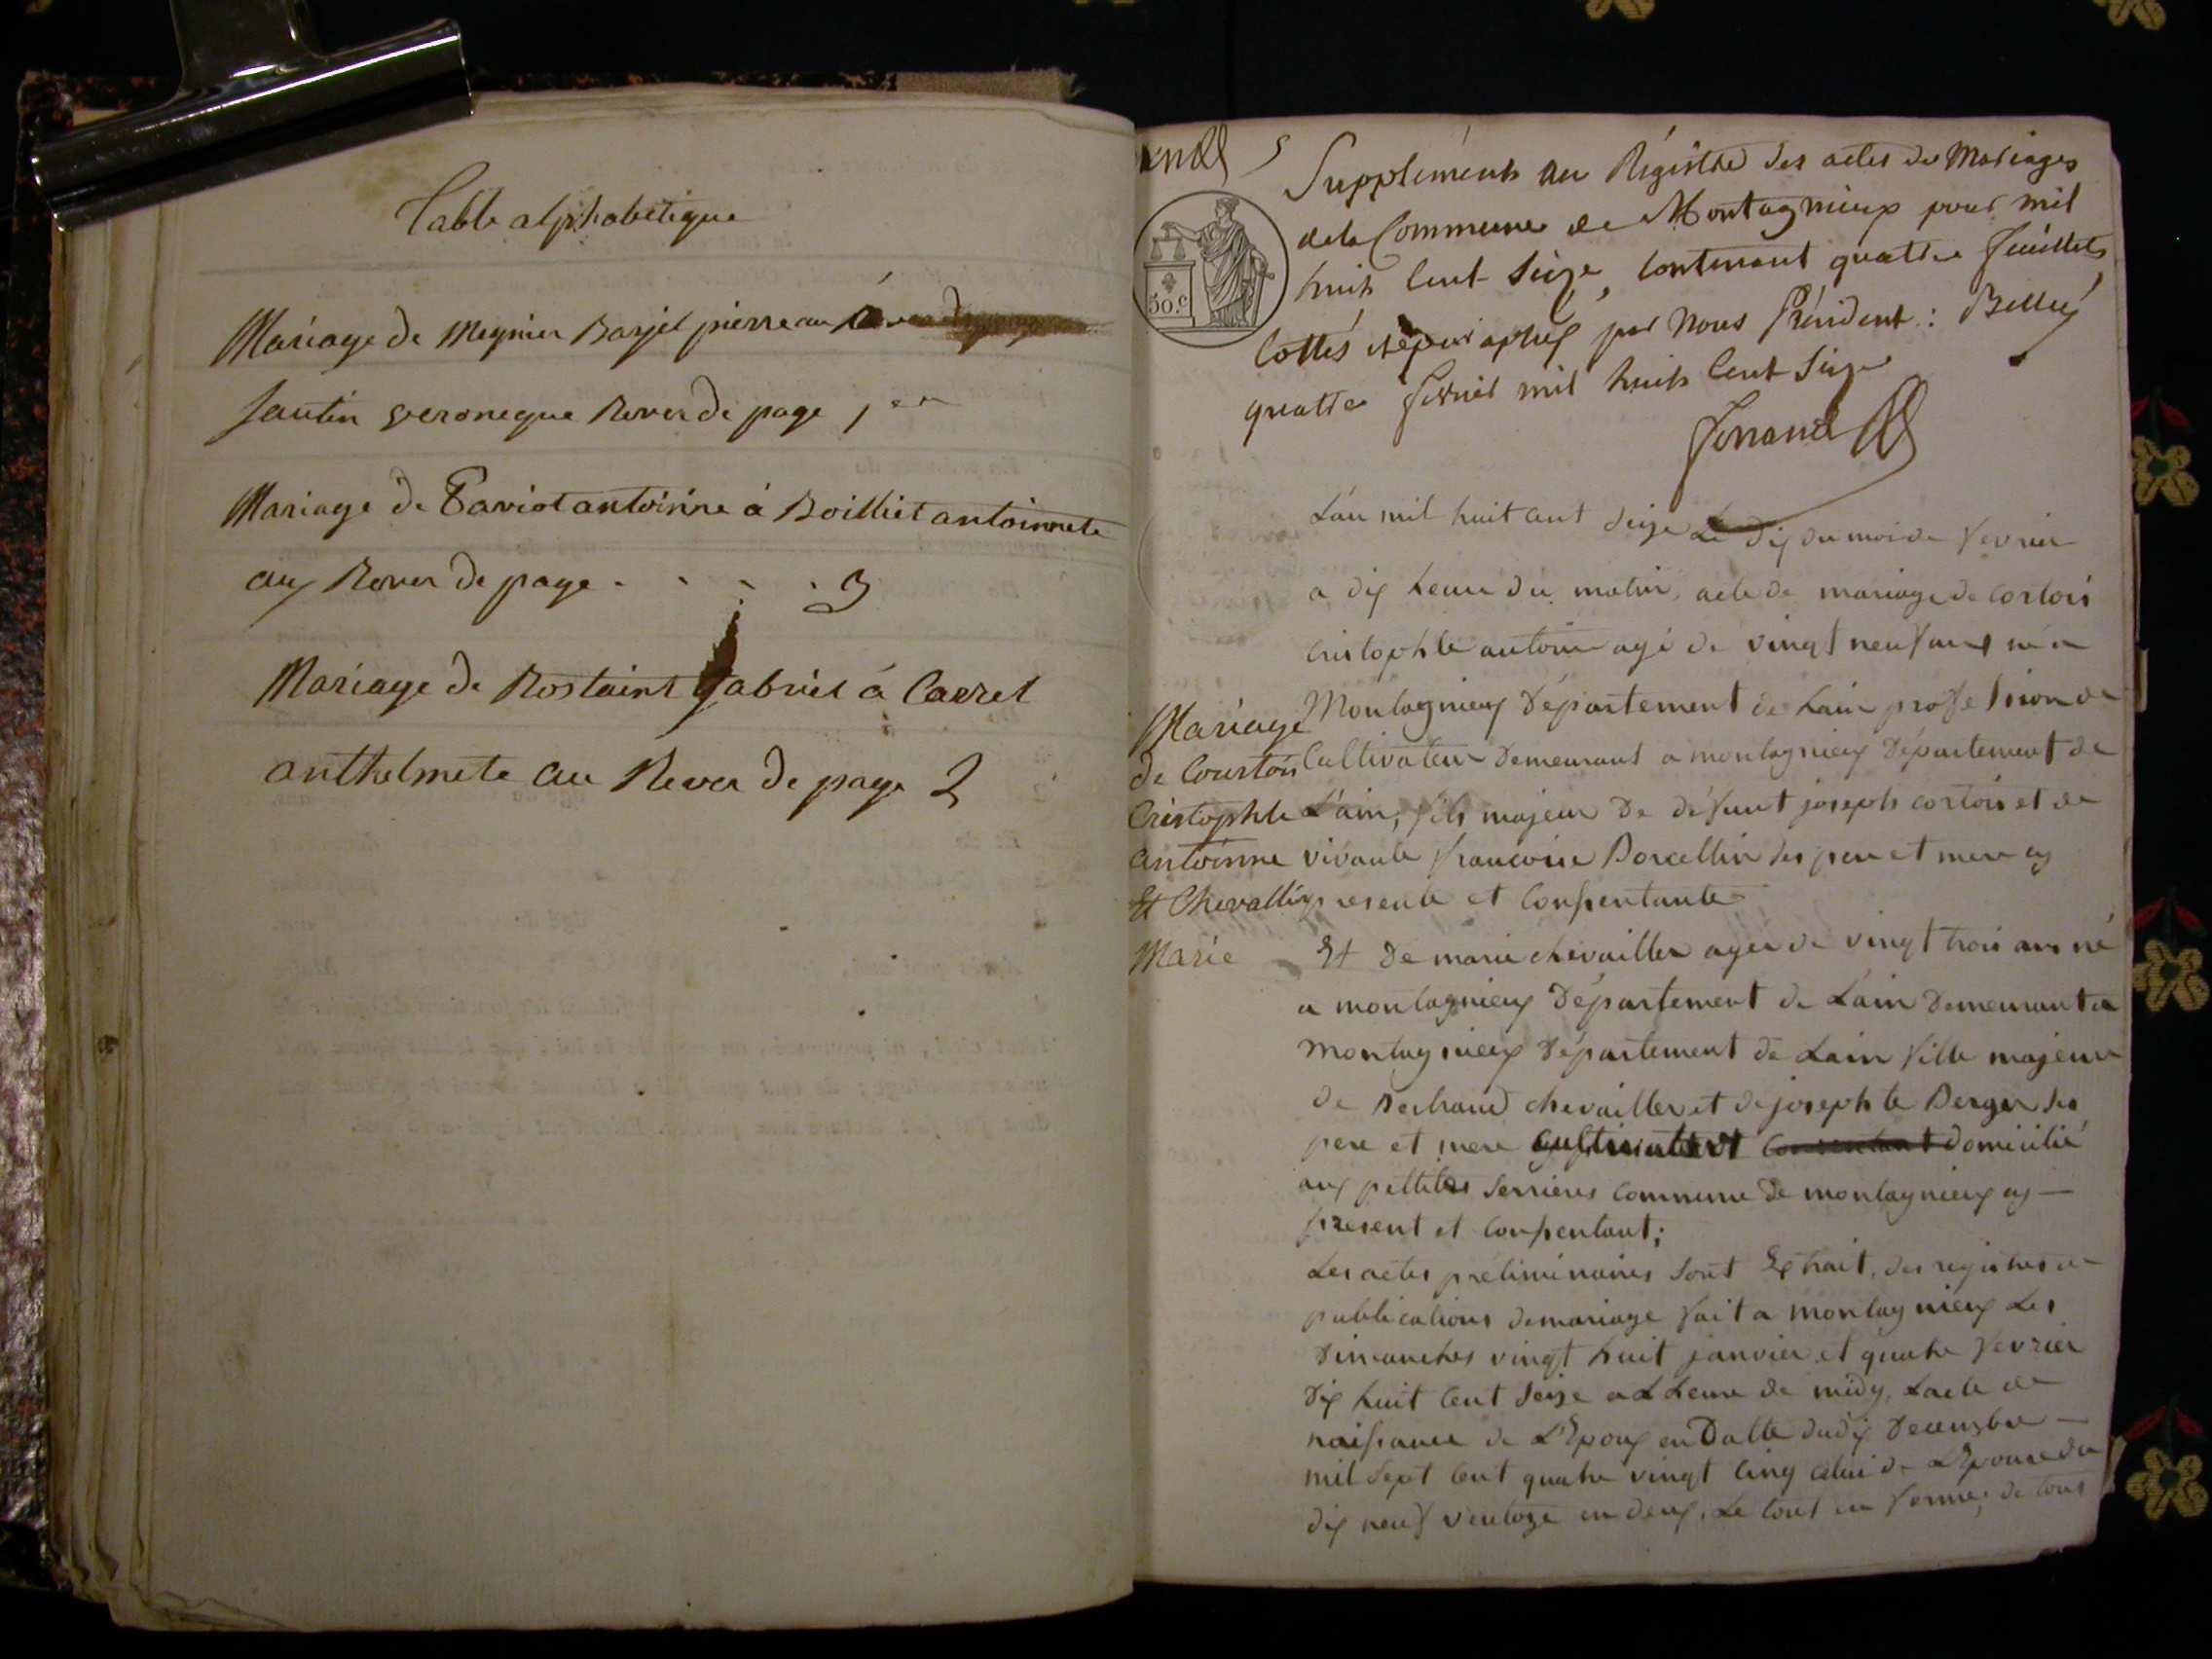 Table alphabétique
Mariage de Meynier Barjel pierre au
Jantin veroneque Rever de page 1er
Mariage de Taviot antoinne á Boilliet antoinnete
aux Rever de page . . . . 3
Mariage de Rostaint gabriel á Carrel
anthelmete au Rever de page 2
Supplément au Régistre des actes de Mariages
de la Commune de Montagnieux pour mil
huit Cent Seize, Contenant quattre feuillets
Cottés et paraphés par Nous Président : Belley
quattre fevrier mil huit Cent Seize
50.c
L'an mil huit cent seize Le dix du moi de fevrier
a dix heure du matin, acte de mariage de Cortois
Cristophle antoine agé de vingt neuf ans né a
Montagnieux Département de Lain profession de
Cultivateur Demeurant a montagnieux Département de
L'ain, fils majeur De défunt joseph cortois et de
vivante francoise Borcellin ses pere et mere cy
presente et Consentante
Mariage
de Courtois
Cristophle
antoinne
Et Chevallier
Marie
Et De marie chevailler agee de vingt trois ans né
a montagnieux Département de Lain Demeurant a
montagnieux Département de Lain fille majeure
de Bertrand chevailler et de josephte Berger ses
pere et mere Cultivateur Consentant domicilié
aux pettites Serrieres commune de montagnieux cy
present et Consentant;
Les actes préliminaires sont Extrait, des registres de
publications de mariage fait a montagnieux Les
Dimanches vingt huit janvier et quatre fevrier
Dix huit Cent Seize a L heure de midy, Lacte de
naissance de L'Epoux en Datte du dix Decembre
mil Sept Cent quatre vingt Cinq celui de L'Epouse du
dix neuf ventoze en deux, Le tout en forme; de tous